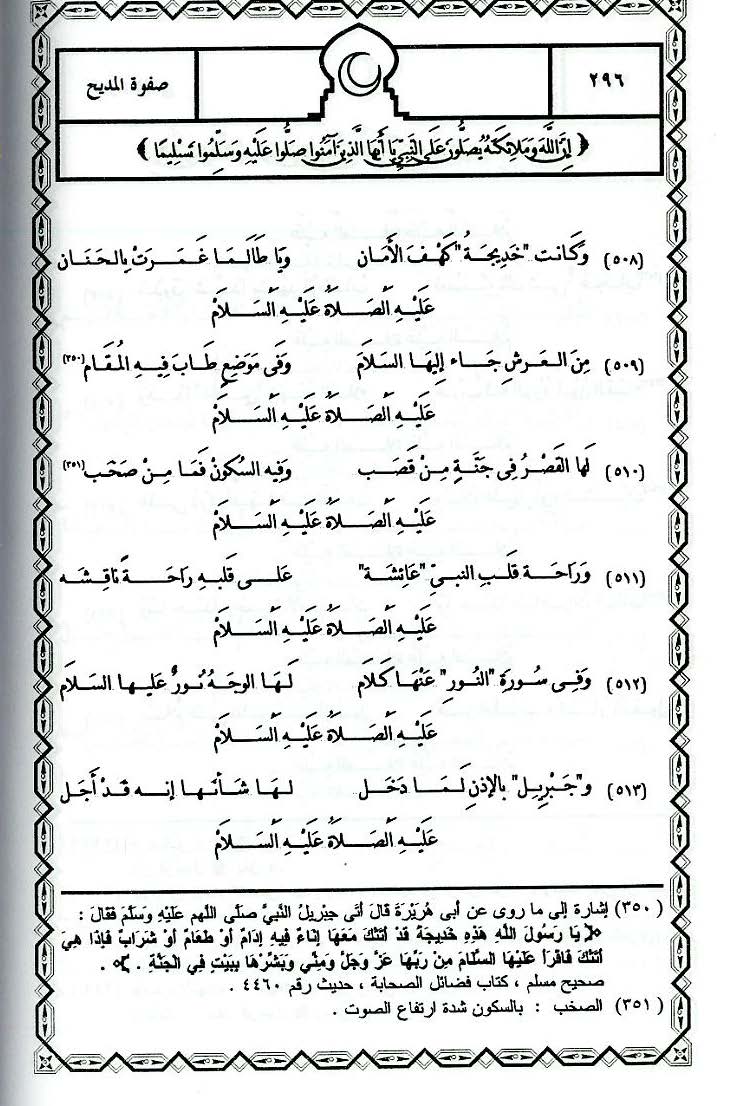 ٢٩٦
صفوة المديح
﴿ إِنَّ اللَّهَ وَمَلَائِكَتَهُ يُصَلُّونَ عَلَى النَّبِيِّ يَا أَيُّهَا الَّذِينَ آمَنُوا صَلُّوا عَلَيْهِ وَسَلِّمُوا تَسْلِيمًا ﴾
(٥٠٨) وَكَانت "خَدِيجَةُ" كَهْفَ الأَمَان وَيَا طَالَمَا غَمَرَتْ بِالحَنَان
عَلَيْهِ الصَّلَاةُ عَلَيْهِ السَّلَامْ
(٥٠٩) مِنَ العَرشِ جَاء إِلَيهَا السَلَامَ وَفى مَوضَعٍ طَابَ فِيهِ المُقَام (٣٥٠)
عَلَيْهِ الصَّلَاةُ عَلَيْهِ السَّلَامْ
(٥١٠) لَهَا القَصْرُ فِى جَنَّةٍ مِنْ قَصَب وَفِيه السُكونْ فَمَا مِنْ صَخَب (٣٥١)
عَلَيْهِ الصَّلَاةُ عَلَيْهِ السَّلَامْ
(٥١١) وَرَاحَة قَلبِ النبيّ "عَائشَة" عَلى قلبهِ رَاحَةً نَاقِشَه
عَلَيْهِ الصَّلَاةُ عَلَيْهِ السَّلَامْ
(٥١٢) وَفِى سُورَة "النُور" عَنْهَا كَلَام لَهَا الوجهُ نُورٌ عليها السَلَام
عَلَيْهِ الصَّلَاةُ عَلَيْهِ السَّلَامْ
(٥١٣) و"جَبْرِيل" بالإذنِ لَمَا دَخَل لهَا شَأنهَا إنه قدْ أَجَل
عَلَيْهِ الصَّلَاةُ عَلَيْهِ السَّلَامْ
(٣٥٠) إشارة إلى ما روى عن أبى هُرَيْرَةَ قَالَ أَتَى جِبْرِيلُ النَّبِيَّ صَلَّى اللهم عَلَيْهِ وَسَلَّمَ فَقَالَ :
﴿ يَا رَسُولَ اللَّهِ هَذِهِ خَدِيجَةُ قَدْ أَتَتْكَ مَعَهَا إِنَاءٌ فِيهِ إِدَامٌ أَوْ طَعَامٌ أَوْ شَرَابٌ فَإِذَا هِيَ
أَتَتْكَ فَاقْرَأْ عَلَيْهَا السَّلَامَ مِنْ رَبِّهَا عَزَّ وَجَلَّ وَمِنِّي وَبَشِّرْهَا بِبَيْتٍ فِي الْجَنَّةِ . ﴾ .
صحيح مسلم ، كتاب فضائل الصحابة ، حديث رقم ٤٤٦٠ .
(٣٥١) الصخب : بالسكون شدة ارتفاع الصوت .